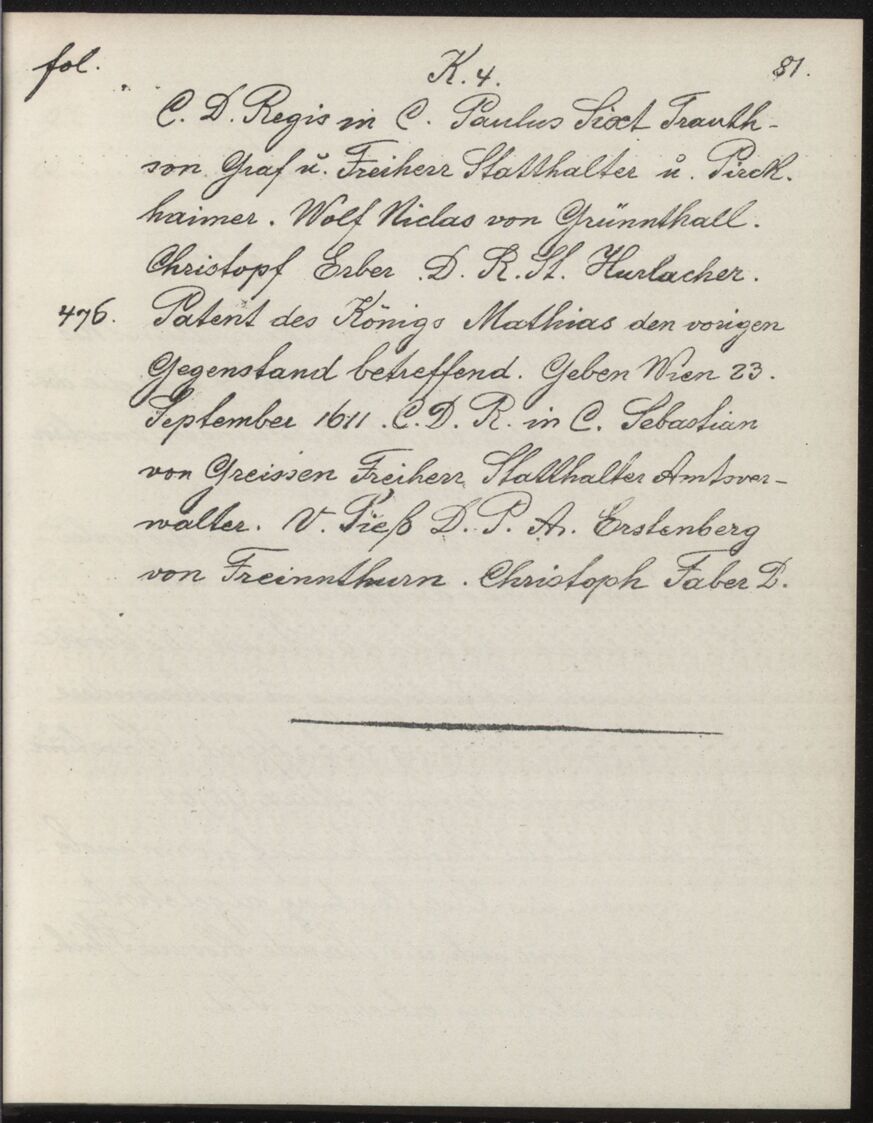 fol. K. 4. 81.
C. D. Regis in C. Paulus Sixt Trauth-
son Graf u. Freiherr Statthalter u. Pirck.
haimer. Wolf Niclas von Grünnthall.
Christopf Erber D. R. St. Hurlacher.
476. Patent des Königs Mathias den vorigen
Gegenstand betreffend. Geben Wien 23.
September 1611. C. D. R. in C. Sebastian
von Greissen Freiherr Statthalter Amtsver-
walter. V. Pieß D. P. A. Erstenberg
von Freinnthurn. Christoph Faber D.